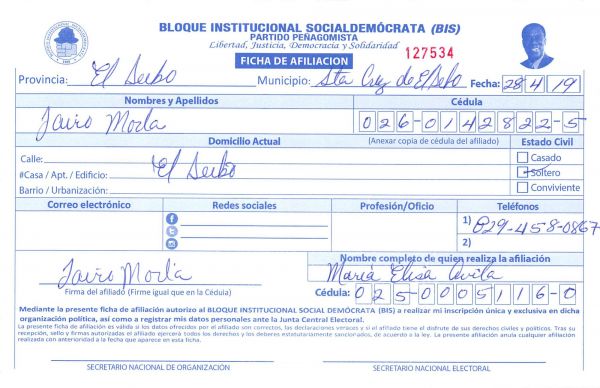 BLOQUE INSTITUCIONAL SOCIALDEMÓCRATA (BIS)
PARTIDO PEÑAGOMISTA
Libertad, Justicia, Democracia y Solidaridad
FICHA DE AFILIACION
127534
Provincia: El Seibo Municipio: Sta Cruz de El Seibo Fecha: 28 4 19
Nombres y Apellidos Cédula
Jairo Morla 026-0142822-5
Domicilio Actual (Anexar copia de cédula del afiliado) Estado Civil
Calle: Casado
#Casa / Apt. / Edificio: El Seibo Soltero
Barrio / Urbanización: Conviviente
Correo electrónico Redes sociales Profesión/Oficio Teléfonos
1) 829-458-0867
2)
Nombre completo de quien realiza la afiliación
Jairo Morla Maria Elisa Avila
Firma del afiliado (Firme igual que en la Cédula) Cédula: 025-0005116-0
Mediante la presente ficha de afiliación autorizo al BLOQUE INSTITUCIONAL SOCIAL DEMÓCRATA (BIS) a realizar mi inscripción única y exclusiva en dicha
organización política, así como a registrar mis datos personales ante la Junta Central Electoral.
La presente ficha de afiliación es válida si los datos ofrecidos por el afiliado son correctos, las declaraciones veraces y si el afiliado tiene el disfrute de sus derechos civiles y políticos. Tras su
recepción, sello y firmas autorizadas el afiliado ejercerá todos los derechos y los deberes estatutariamente sancionados, de acuerdo a la ley. La presente afiliación anula cualquier afiliación
realizada con anterioridad a la fecha que aparece en esta ficha.
SECRETARIO NACIONAL DE ORGANIZACIÓN SECRETARIO NACIONAL ELECTORAL